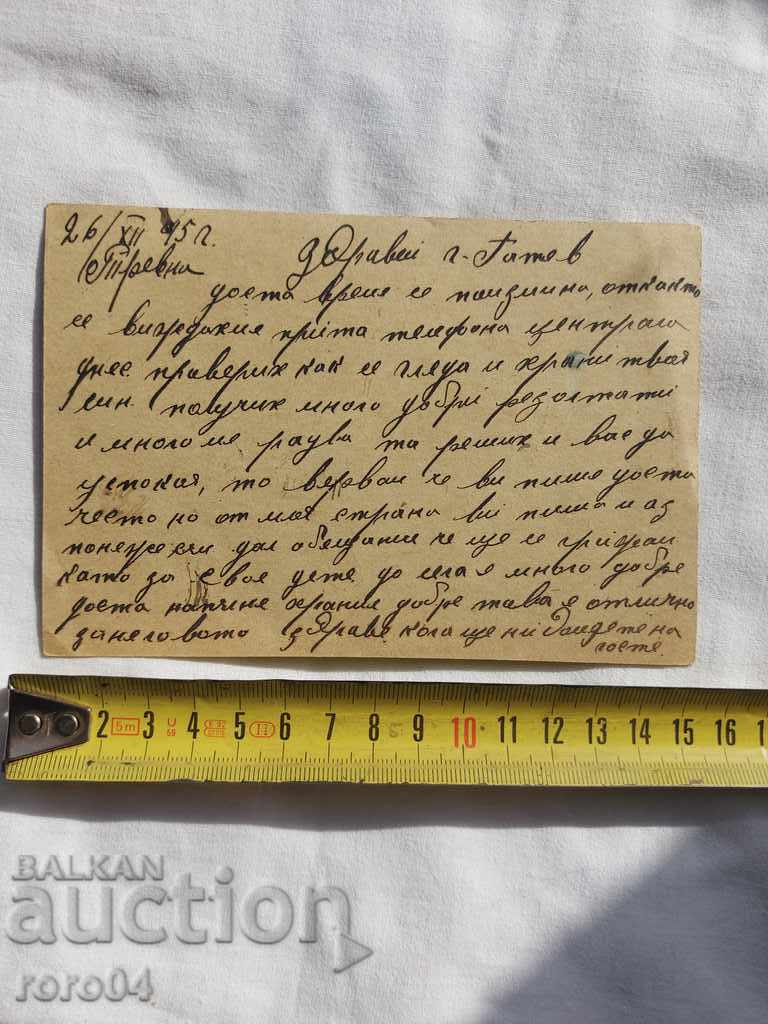 26/XII 45 г.
с Тревна Здравей г. Гатев
доста време се поизмина, откакто
се виждахме прита телефона централа
днес проверих как се гледа и храни твоя
син. получих много добри резолтати
и много ме радва та реших и вас да
успокоя, то вервам че ви пише доста
често но от моя страна ви пиша и аз
понеже сам дал обещание че ще се грижа
като за свое дете до сега е много добре
доста напълня храним добре това е отлично
занеговото здраве кога ще ни дойдете на
госте.
2 5m 3 U 59 4 5 6 7 8 9 10 11 12 13 14 15 16 1
BALKAN
auction
roro04